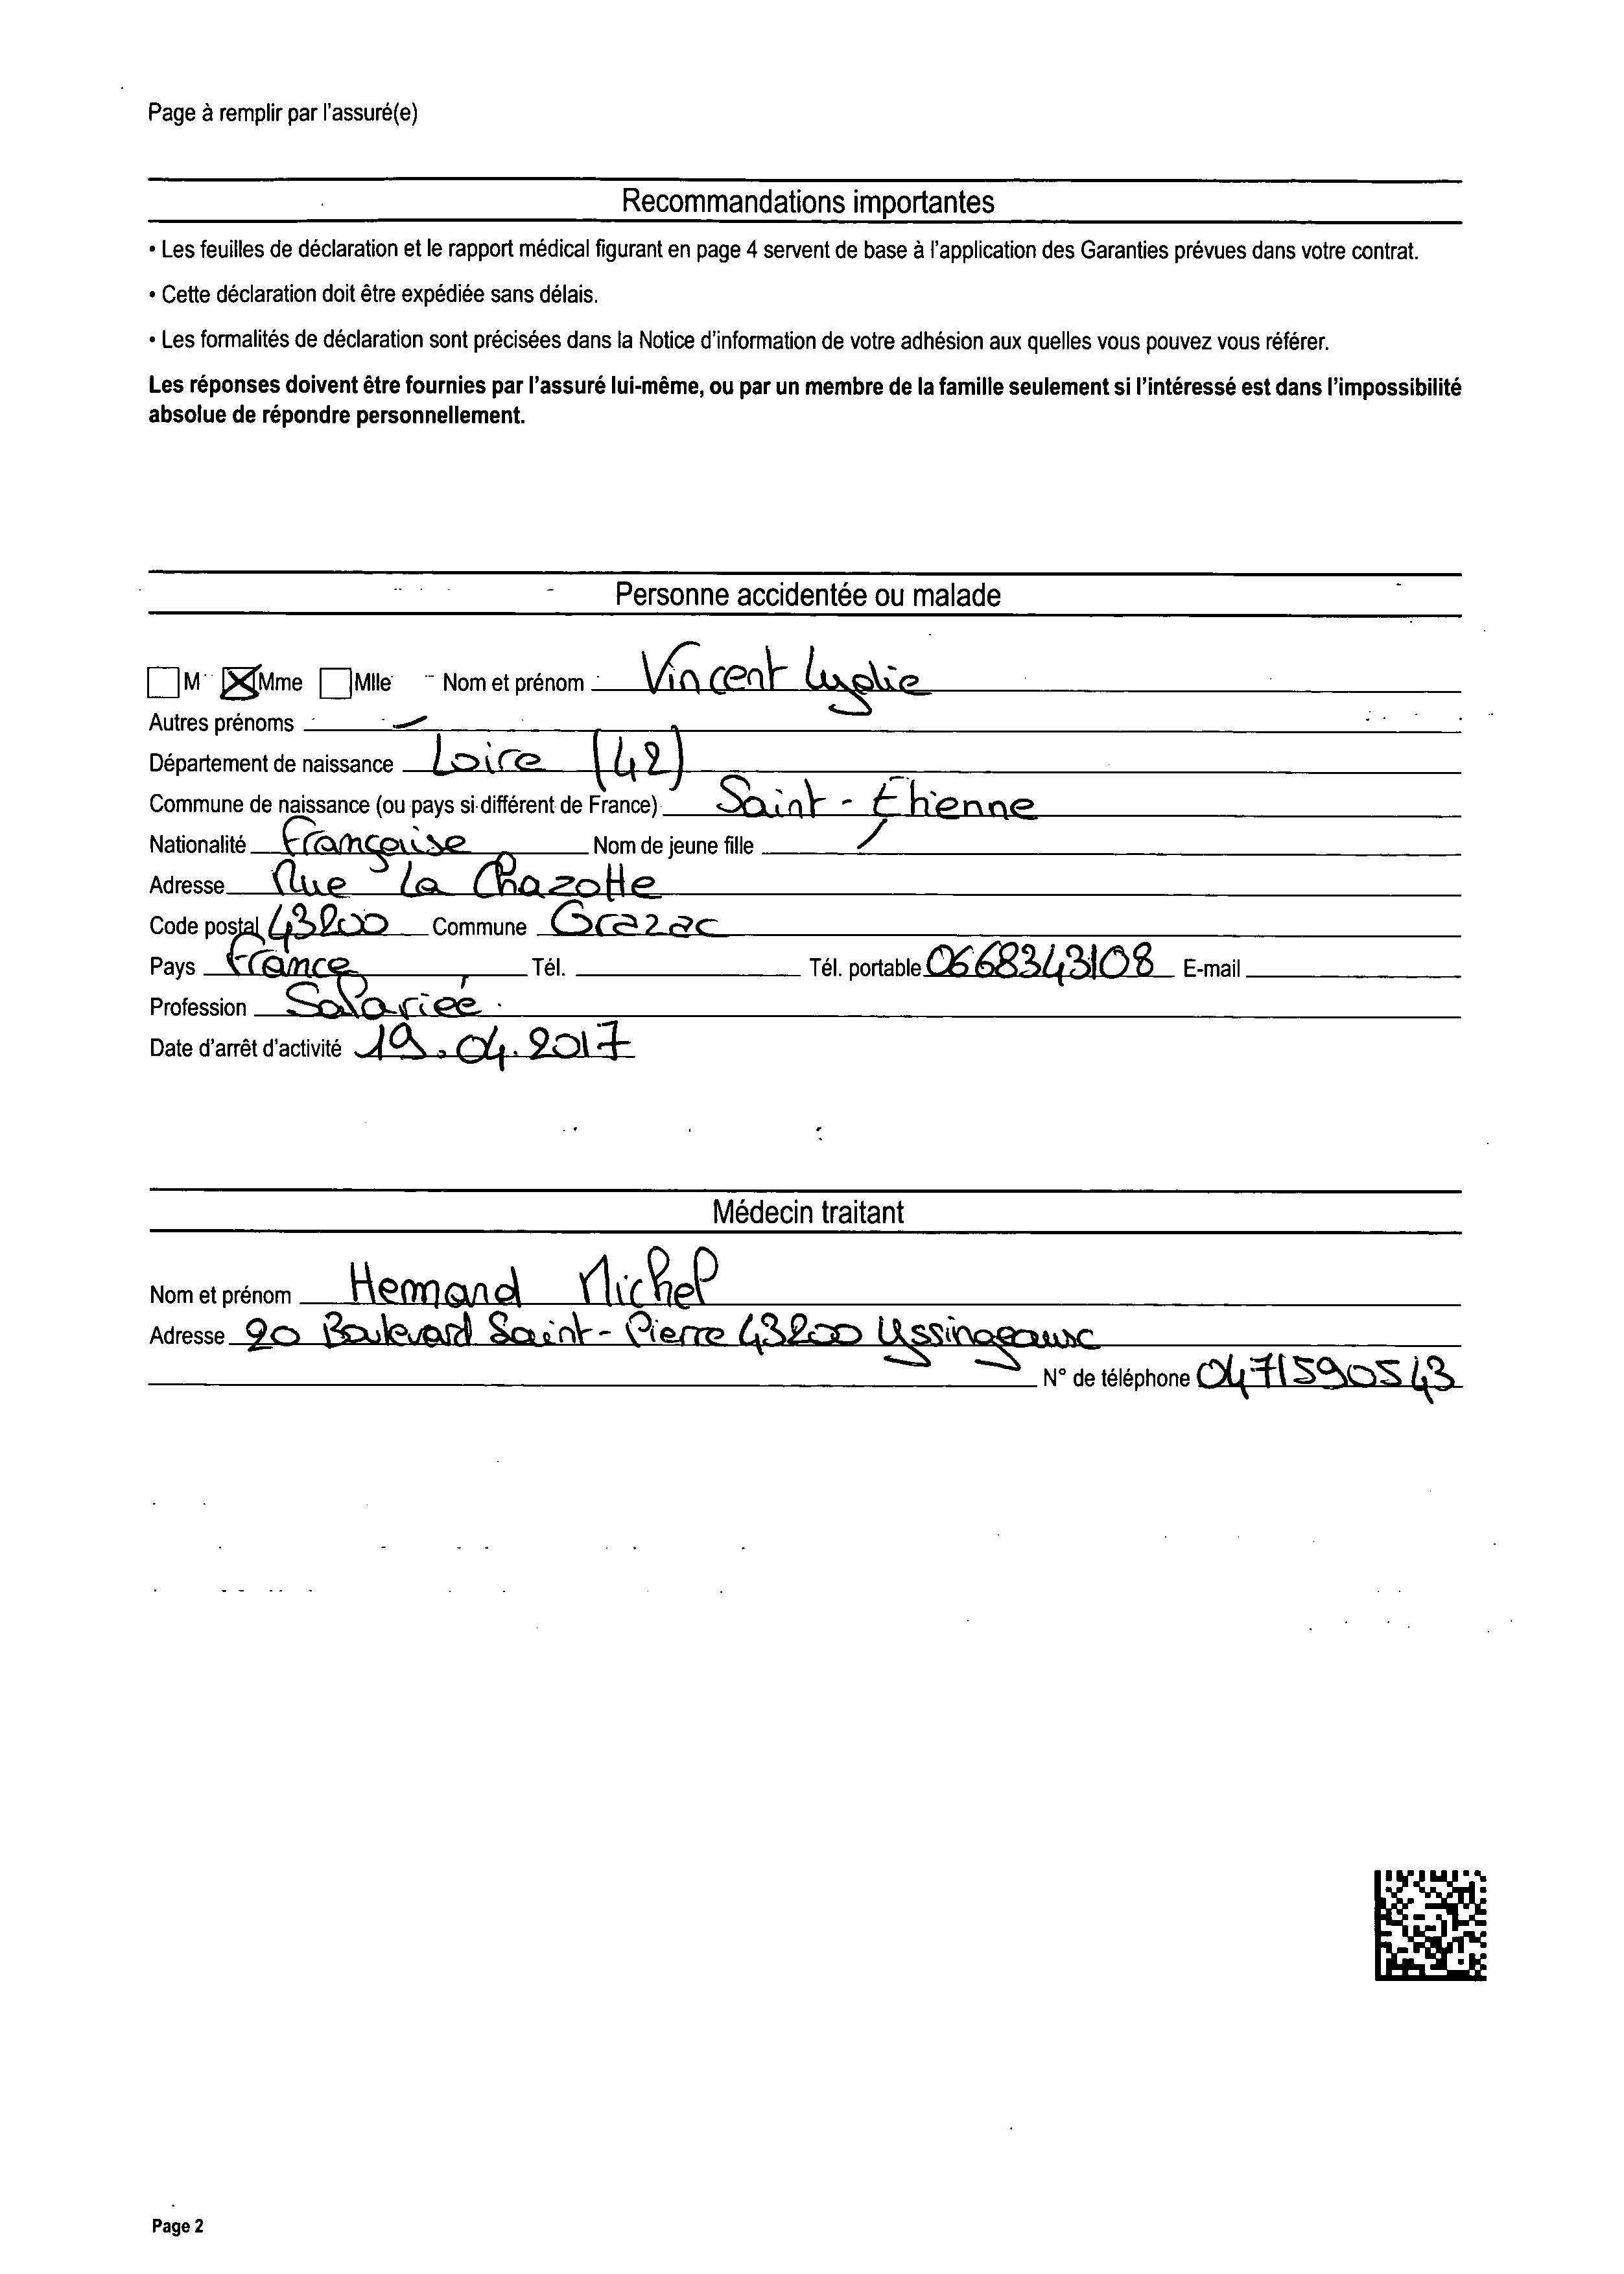 Page à remplir par l'assuré(e)
Recommandations importantes
• Les feuilles de déclaration et le rapport médical figurant en page 4 servent de base à l'application des Garanties prévues dans votre contrat.
• Cette déclaration doit être expédiée sans délais.
• Les formalités de déclaration sont précisées dans la Notice d'information de votre adhésion aux quelles vous pouvez vous référer.
Les réponses doivent être fournies par l'assuré lui-même, ou par un membre de la famille seulement si l'intéressé est dans l'impossibilité
absolue de répondre personnellement.
Personne accidentée ou malade
M Mme Mlle Nom et prénom Vincent Lydie
Autres prénoms -
Département de naissance Loire (42)
Commune de naissance (ou pays si différent de France) Saint-Etienne
Nationalité Française Nom de jeune fille /
Adresse Rue la Chazotte
Code postal 43200 Commune Grazac
Pays France Tél. Tél. portable 0668343108 E-mail
Profession Salariée
Date d'arrêt d'activité 19.04.2017
Médecin traitant
Nom et prénom Hemand Michel
Adresse 20 Boulevard Saint-Pierre 43200 Yssingeaux
N° de téléphone 0471590543
Page 2